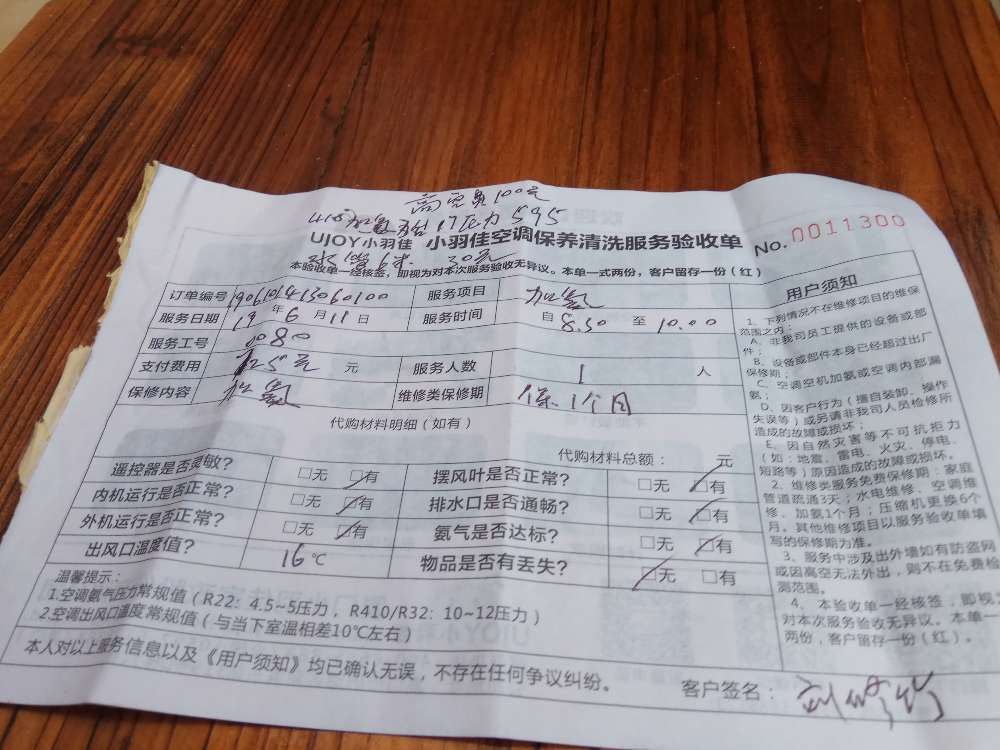 高空费100元
410加氨 17压力 595
UJOY小羽佳 小羽佳空调保养清洗服务验收单
No. 0011300
6米 30元
本验收单一经核签，即视为对本次服务验收无异议。本单一式两份，客户留存一份（红）
订单编号
服务项目 加氨
服务日期 19年6月11日
服务时间 自8.30至10.00
服务工号 080
支付费用 725元 元
服务人数 1 人
保修内容 加氨
维修类保修期 保1个月
代购材料明细（如有）
代购材料总额： 元
遥控器是否灵敏？ □无 □有
摆风叶是否正常？ □无 □有
内机运行是否正常？ □无 □有
排水口是否通畅？ □无 □有
外机运行是否正常？ □无 □有
氨气是否达标？ □无 □有
出风口温度值？ 16℃
物品是否有丢失？ □无 □有
温馨提示：
1.空调氨气压力常规值（R22：4.5~5压力，R410/R32：10~12压力）
2.空调出风口温度常规值（与当下室温相差10℃左右）
本人对以上服务信息以及《用户须知》均已确认无误，不存在任何争议纠纷。
客户签名：
用户须知
1、下列情况不在维修项目的维保
范围之内：
A、非我司员工提供的设备或部
件；
B、设备或部件本身已经超过出厂
保修期；
C、空调空机加氨或空调内部漏
氨；
D、因客户行为（擅自装卸、操作
失误等）或另请非我司人员检修所
造成的故障或损坏；
E、因自然灾害等不可抗拒力
（如：地震、雷电、火灾、停电、
短路等）原因造成的故障或损坏。
2、维修类服务免费保修期：家庭
管道疏通3天；水电维修、空调维
修、加氨1个月；压缩机更换6个
月。其他维修项目以服务验收单填
写的保修期为准。
3、服务中涉及出外墙如有防盗网
或因高空无法外出，则不在免费检
测范围。
4、本验收单一经核签，即视为
对本次服务验收无异议。本单一式
两份，客户留存一份（红）。